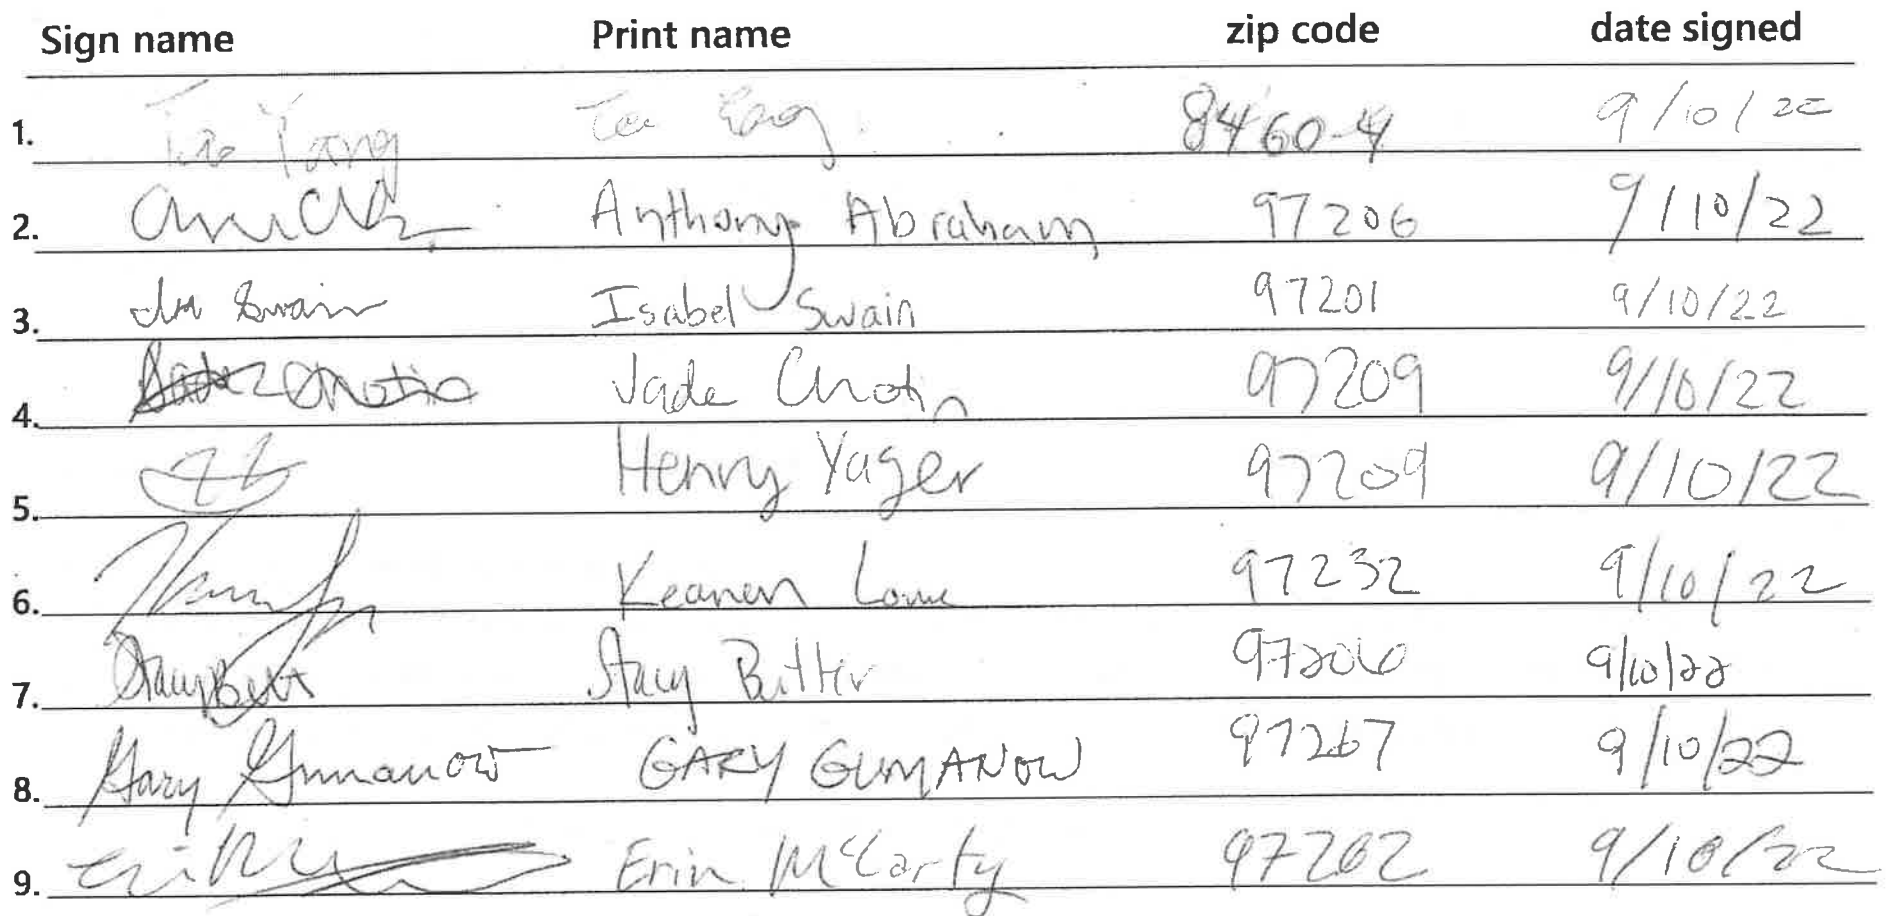 Sign name Print name zip code date signed
1. Yang 84604 9/10/22
2. Anthony Abraham 97206 9/10/22
3. Swain Isabel Swain 97201 9/10/22
4. Jade Chotin 97209 9/10/22
5. Henry Yager 97209 9/10/22
6. Keanen Lowe 97232 9/10/22
7. Stacy Stacy Butter 97206 9/10/22
8. Gary Gumanow GARY GUMANOW 97267 9/10/22
9. Erin McCarty 97202 9/10/22